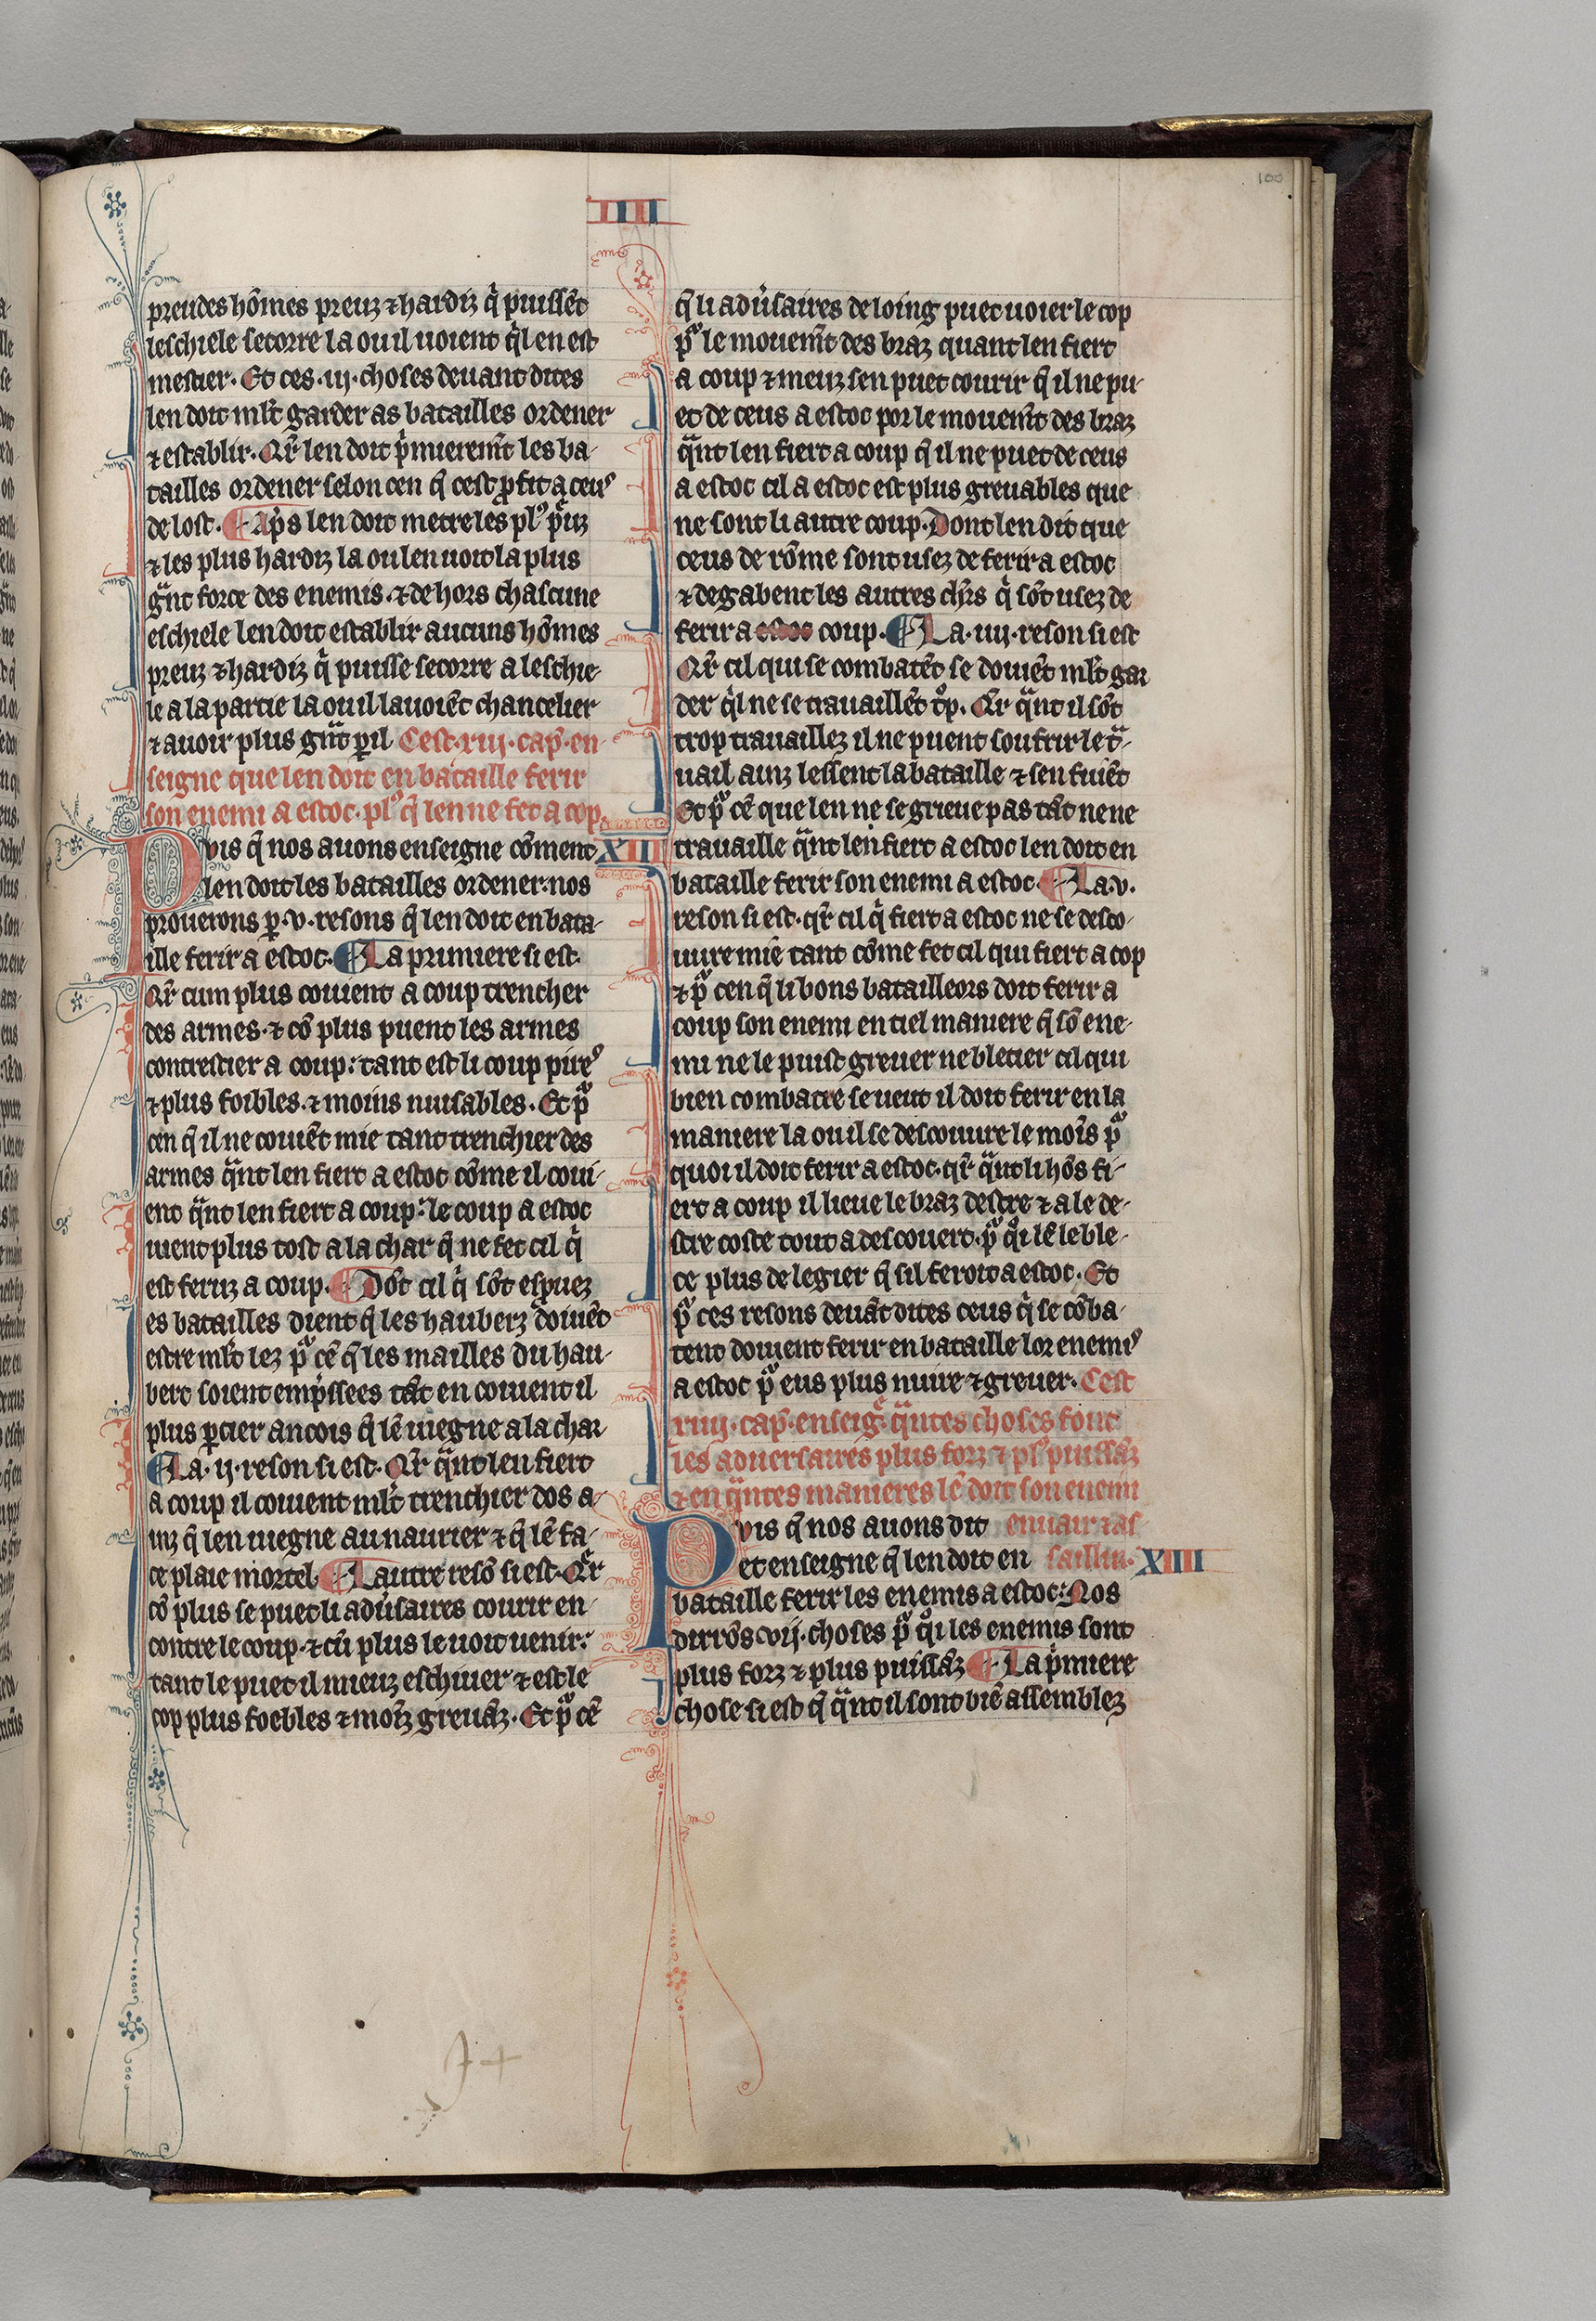 100
IIII
preudes hõmes preuz ⁊ hardiz q̇ puissẽt
leschiele secorre la ou il uoient q̇l en est
mestier. Et ces .iij. choses deuant dites
len doit ml̃t garder as batailles ordener
⁊ establir. Qr̃ len doit pͥmierem̃t les ba-
tailles ordener selon cen q̃ cest ꝓfit a ceuꝰ
de lost. ¶ Apͤs len doit metre les plꝰ pͤuz
⁊ les plus hardiz la ou len uoit la plus
gᷓnt force des enemis. ⁊ de hors chascune
eschiele len doit establir aucuns hõmes
preuz ⁊ hardiz q̇ puisse secorre a leschie-
le a la partie la ou il la uoiẽt chanceler
⁊ auoir plus gᷓnt ꝑil Cest .xiij. cap̃. en
seigne que len doit en bataille ferir
son enemi a estoc. plꝰ q̃ len ne fet a cop.
Puis q̃ nos auons enseigne cõment XIII
len doit les batailles ordener: nos
prouerons ꝑ .v. resons q̃ len doit en bata-
ille ferir a estoc. ¶ La primiere si est.
Qr̃ cum plus couient a coup trencher
des armes. ⁊ cõ plus puent les armes
contrestier a coup: tant est li coup pireꝰ
⁊ plus foibles. ⁊ moins nuisables. Et pᷓ
cen q̃ il ne couiẽt mie tant trenchier des
armes qᷓnt len fiert a estoc cõme il coui-
ent qᷓnt len fiert a coup: le coup a estoc
uient plus tost a la char q̃ ne fet cil q̇
est feruz a coup. ¶ Dõt cil q̇ sõt espuez
es batailles dient q̃ les hauberz doiuẽt
estre ml̃t lez pᷓ cẽ q̃ les mailles du hau-
bert soient emp̃ssees tãt en couient il
plus ꝑcier ancois q̃ lẽ uiegne a la char
¶ La .ij. reson si est. Qr̃ qᷓnt len fiert
a coup il couient ml̃t trenchier dos a-
uz q̃ len uiegne au naurier ⁊ q̃ lẽ fa-
ce plaie mortel. ¶ Lautre resõ si est. Qr̃
cõ plus se puet li adũsaires courir en-
contre le coup. ⁊ cũ plus le uoit uenir:
tant le puet il mieuz eschiuer ⁊ est le
cop plus foebles ⁊ moĩz greuãz. Et pᷓ cẽ
q̃ li adũsaires de loing puet uoier le cop
pᷓ le mouem̃t des braz quant len fiert
a coup ⁊ meuz sen puet courir q̃ il ne pu-
et de ceus a estoc por le mouem̃t des braz
qᷓnt len fiert a coup q̃ il ne puet de ceus
a estoc cil a estoc est plus greuables que
ne sont li autre coup. Dont len dit que
ceus de rõme sont usez de ferir a estoc
⁊ degabent les autres ch̃rs q̇ sõt usez de
ferir a estoc coup. ¶ La .iiij. reson si est
Qr̃ cil qui se combatẽt se doiuẽt ml̃t gar
der q̇l ne se trauaillẽt tᷓp. Qr̃ qᷓnt il sõt
trop trauaillez il ne puent soufrir le tᷓ-
uail ainz lessent la bataille ⁊ sen fuiẽt
Et pᷓ cẽ que len ne se grieue pas tãt ne ne
trauaille qᷓnt len fiert a estoc len doit en
bataille ferir son enemi a estoc. ¶ La .v.
reson si est. qr̃ cil q̇ fiert a estoc ne se desco-
uure mie tant cõme fet cil qui fiert a cop
⁊ pᷓ cen q̃ li bons batailleors doit ferir a
coup son enemi en tiel maniere q̃ sõ ene-
mi ne le puist greuer ne blecier cil qui
bien combatre se ueut il doit ferir en la
maniere la ou il se descouure le moĩs pᷓ
quoi il doit ferir a estoc. qr̃ qᷓnt li hõs fi-
ert a coup il lieue le braz destre ⁊ a le de-
stre coste tout a descouert. pᷓ qͦi lẽ le ble-
ce plus de legier q̃ sil feroit a estoc. Et
pᷓ ces resons deuãt dites ceus q̇ se cõba-
tent doiuent ferir en bataille lor enemiꝰ
a estoc pᷓ eus plus nuire ⁊ greuer. Cest
xiiij. cap̃. enseigͤ. qᷓntes choses font
les aduersaires plus forz ⁊ plꝰ puissãz
⁊ en qᷓntes manieres lẽ doit son enemi
Puis q̃ nos auons dit enuair ⁊ as-
et enseigne q̃ len doit en saillir. XIIII
bataille ferir les enemis a estoc: Nos
dirrõs .vij. choses pᷓ qͦi les enemis sont
plus forz ⁊ plus puissãz ¶ La pͥmiere
chose si est q̃ qᷓnt il sont biẽ assemblez